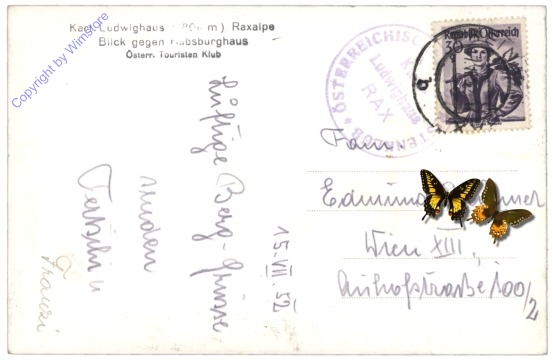 Karl Ludwighaus (1804 m) Raxalpe
Blick gegen Habsburghaus
Österr. Touristen Klub
Copyright by Winstore
ÖSTERREICHISCHER TOURISTENKLUB
Ludwighaus
RAX
Republik Österreich
30
Luftige Berg-Grüsse
senden
u
Franzi
15. VII. 52
Wien XIII,
Auhofstraße 100/2